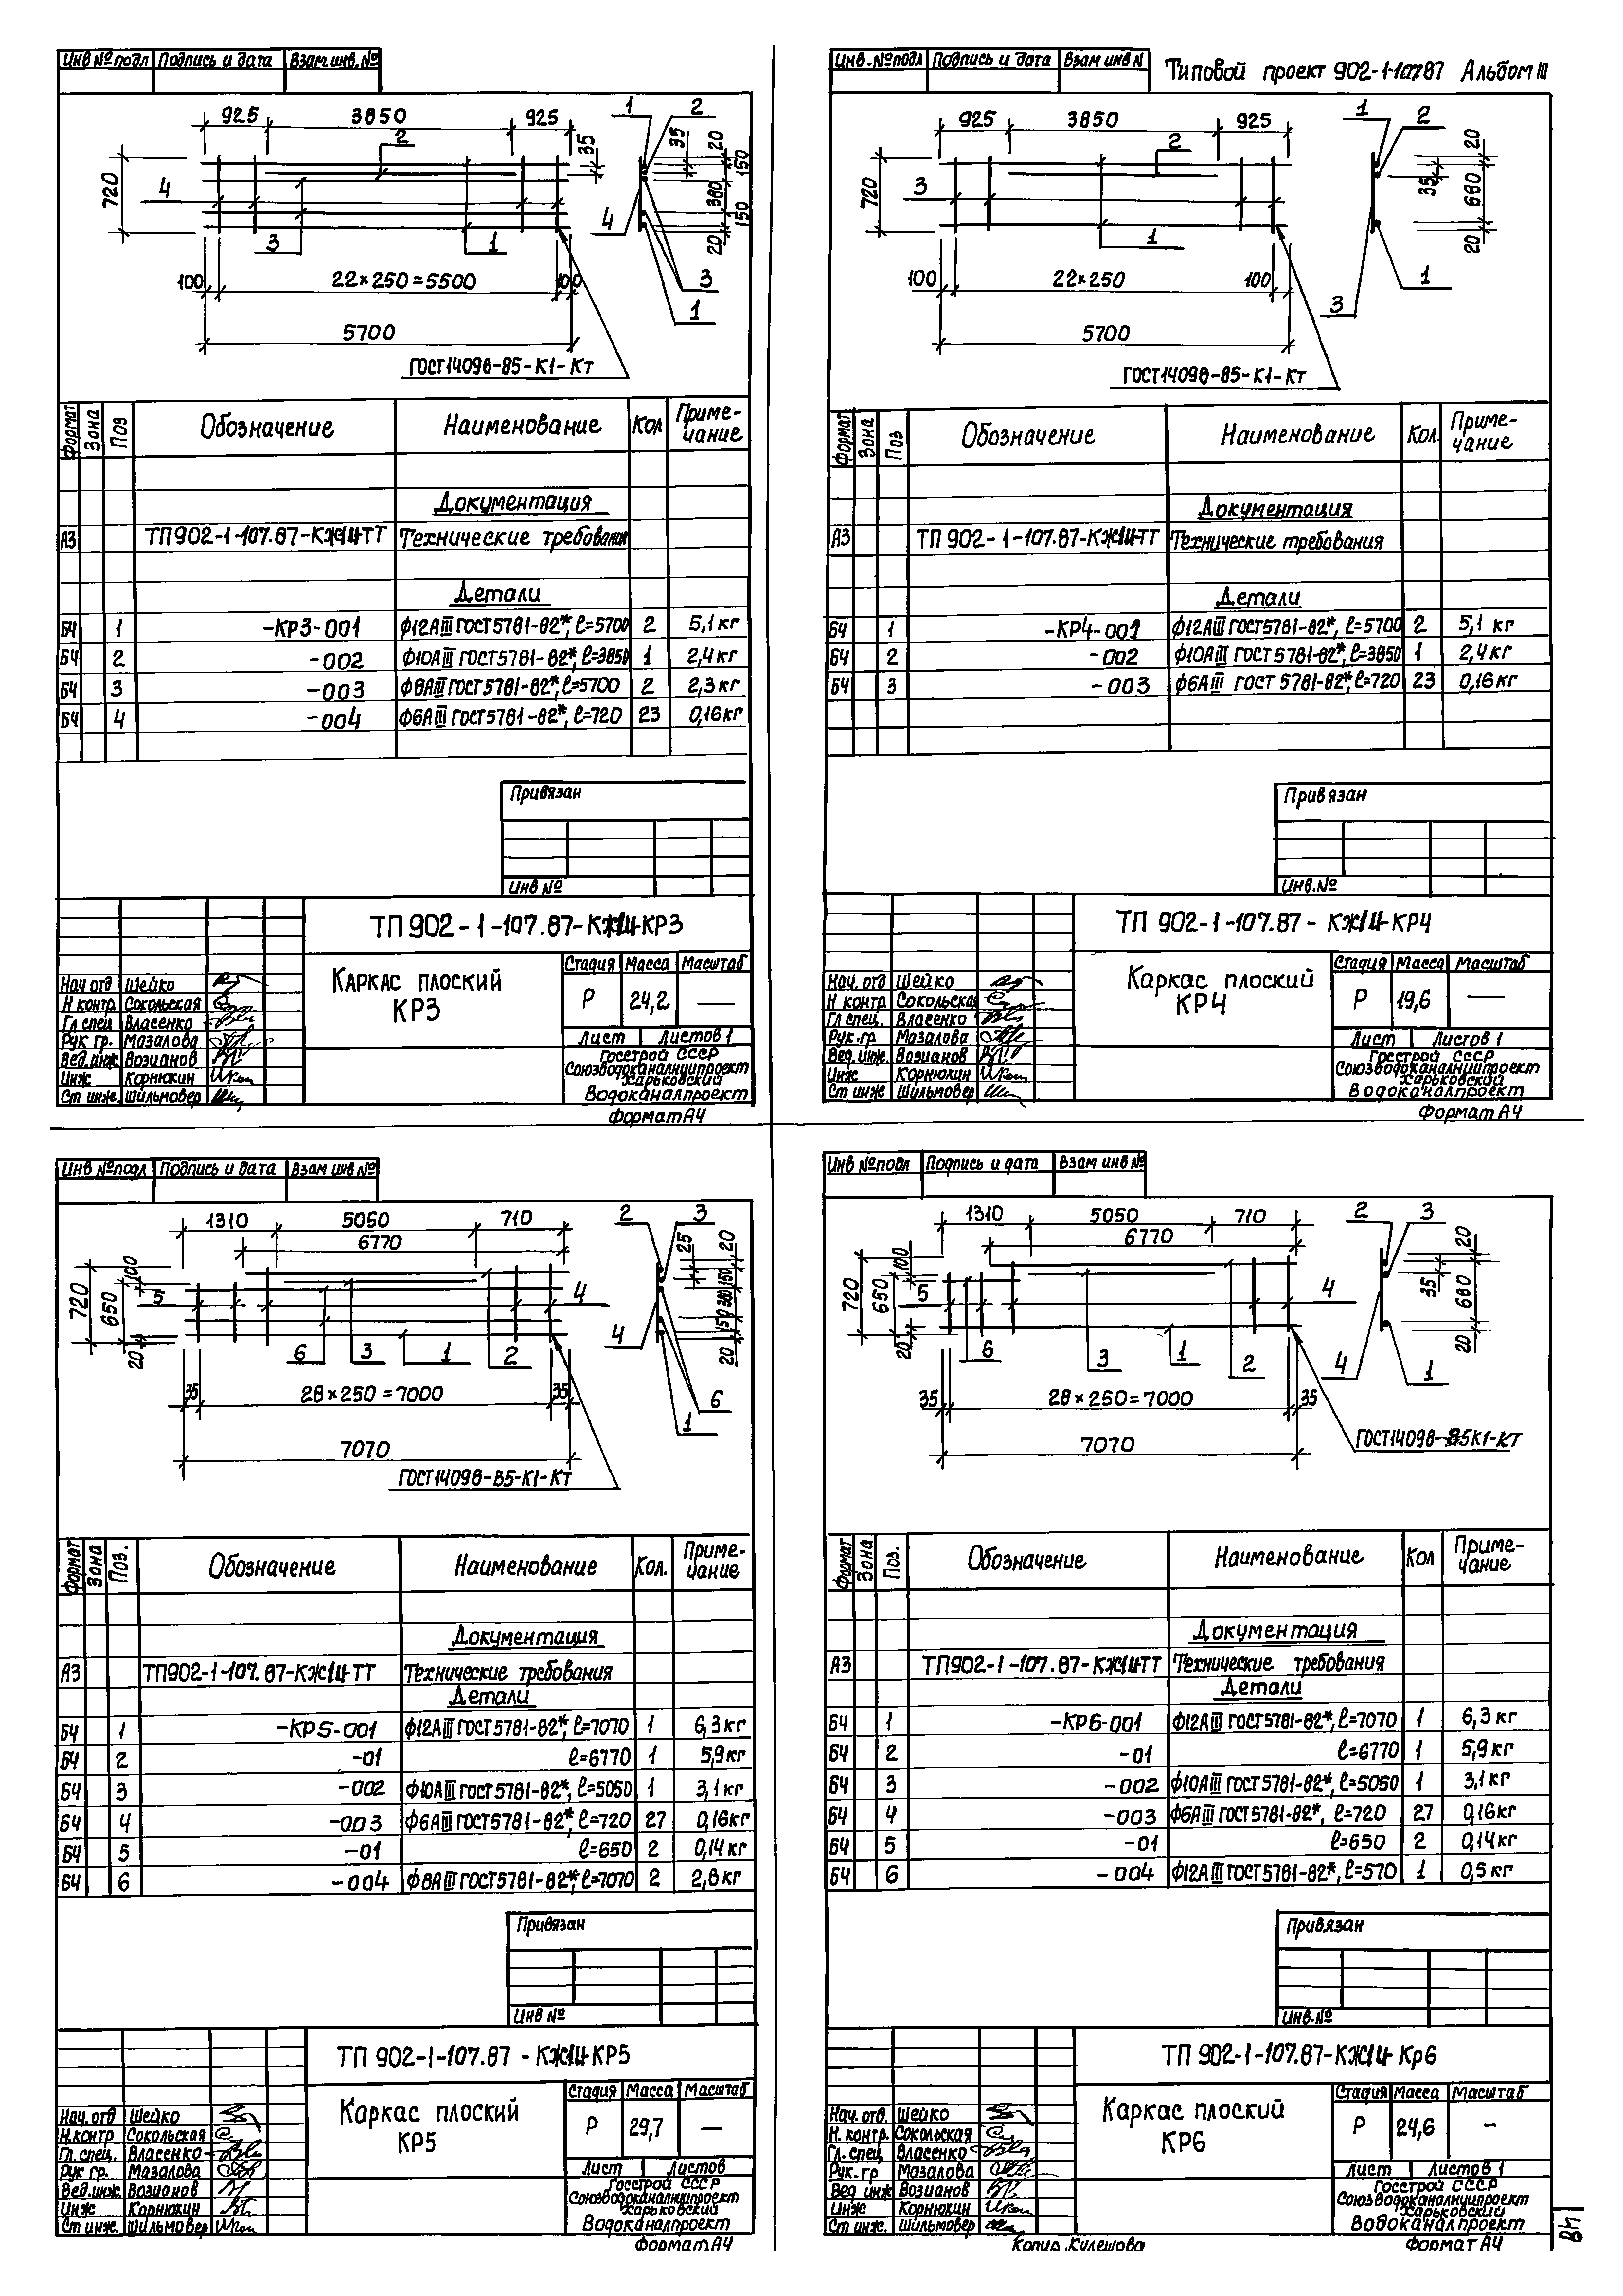 Инв № подл Подпись и дата Взам. инв. №
925 3850 925
1 2
2
35 35 20 150
720 4
380 150 20
3 1
4
3
1
100 22×250=5500 100
5700
ГОСТ 14098-85-К1-Кт
Формат Зона Поз Обозначение Наименование Кол Приме-чание
Документация
А3 ТП902-1-107.87-КЖ1И-ТТ Технические требования
Детали
БЧ 1 -КР3-001 Ф12АIII ГОСТ5781-82*, ℓ=5700 2 5,1 кг
БЧ 2 -002 Ф10АIII ГОСТ5781-82*, ℓ=3850 1 2,4 кг
БЧ 3 -003 Ф8АIII ГОСТ5781-82*, ℓ=5700 2 2,3 кг
БЧ 4 -004 Ф6АIII ГОСТ5781-82*, ℓ=720 23 0,16 кг
Привязан
Инв №
ТП 902-1-107.87-КЖ1И-КР3
Каркас плоский
КР3
Стадия Масса Масштаб
Р 24,2 —
Лист Листов 1
Нач отд Шейко
Н контр Сокольская
Гл спец Власенко
Рук гр. Мазалова
Вед. инж. Возианов
Инж Корнюхин
Ст инж. Шильмовер
Госстрой СССР
Союзводоканалниипроект
Харьковский
Водоканалпроект
Формат А4
Инв. № подл Подпись и дата Взам инв N
Типовой проект 902-1-107.87 Альбом III
925 3850 925
1 2
2
720 3
20 35 680 20
1
1
3
100 22×250 100
5700
ГОСТ14098-85-К1-Кт
Формат Зона Поз Обозначение Наименование Кол. Приме-чание
Документация
А3 ТП 902-1-107.87-КЖ1И-ТТ Технические требования
Детали
БЧ 1 -КР4-001 Ф12АIII ГОСТ5781-82*, ℓ=5700 2 5,1 кг
БЧ 2 -002 Ф10АIII ГОСТ5781-82*, ℓ=3850 1 2,4 кг
БЧ 3 -003 Ф6АIII ГОСТ 5781-82*, ℓ=720 23 0,16 кг
Привязан
Инв. №
ТП 902-1-107.87-КЖ1И-КР4
Каркас плоский
КР4
Стадия Масса Масштаб
Р 19,6 —
Лист Листов 1
Нач. отд Шейко
Н контр Сокольская
Гл спец. Власенко
Рук. гр Мазалова
Вед. инж. Возианов
Инж Корнюхин
Ст инж Шильмовер
Госстрой СССР
Союзводоканалниипроект
Харьковский
Водоканалпроект
Формат А4
Инв № подл Подпись и дата Взам инв №
1310 5050 710
6770
2 3
25 20
720 650 100 5 4
150 380 150 20
20
6 3 1 2
4
6
1
35 28×250=7000 35
7070
ГОСТ14098-85-К1-Кт
Формат Зона Поз. Обозначение Наименование Кол. Приме-чание
Документация
А3 ТП902-1-107.87-КЖ1И-ТТ Технические требования
Детали
БЧ 1 -КР5-001 Ф12АIII ГОСТ5781-82*, ℓ=7070 1 6,3 кг
БЧ 2 -01 ℓ=6770 1 5,9 кг
БЧ 3 -002 Ф10АIII ГОСТ5781-82*, ℓ=5050 1 3,1 кг
БЧ 4 -003 Ф6АIII ГОСТ5781-82*, ℓ=720 27 0,16 кг
БЧ 5 -01 ℓ=650 2 0,14 кг
БЧ 6 -004 Ф8АIII ГОСТ5781-82*, ℓ=7070 2 2,8 кг
Привязан
Инв №
ТП 902-1-107.87-КЖ1И-КР5
Каркас плоский
КР5
Стадия Масса Масштаб
Р 29,7 —
Лист Листов
Нач. отд Шейко
Н. контр Сокольская
Гл. спец. Власенко
Рук гр. Мазалова
Вед. инж. Возианов
Инж Корнюхин
Ст инж. Шильмовер
Госстрой СССР
Союзводоканалниипроект
Харьковский
Водоканалпроект
Формат А4
Инв № подл Подпись и дата Взам инв №
1310 5050 710
6770
2 3
720 650 100 5 4
20 35 680 20
20
6 3 1 2
4 1
35 28×250=7000 35
7070
ГОСТ14098-85К1-КТ
Формат Зона Поз. Обозначение Наименование Кол Приме-чание
Документация
А3 ТП902-1-107.87-КЖ1И-ТТ Технические требования
Детали
БЧ 1 -КР6-001 Ф12АIII ГОСТ5781-82*, ℓ=7070 1 6,3 кг
БЧ 2 -01 ℓ=6770 1 5,9 кг
БЧ 3 -002 Ф10АIII ГОСТ5781-82*, ℓ=5050 1 3,1 кг
БЧ 4 -003 Ф6АIII ГОСТ5781-82*, ℓ=720 27 0,16 кг
БЧ 5 -01 ℓ=650 2 0,14 кг
БЧ 6 -004 Ф12АIII ГОСТ5781-82*, ℓ=570 1 0,5 кг
Привязан
Инв. №
ТП 902-1-107.87-КЖ1И-Кр6
Каркас плоский
КР6
Стадия Масса Масштаб
Р 24,6 —
Лист Листов 1
Нач. отд. Шейко
Н. контр. Сокольская
Гл. спец Власенко
Рук. гр Мазалова
Вед инж Возианов
Инж Корнюхин
Ст инж. Шильмовер
Госстрой СССР
Союзводоканалниипроект
Харьковский
Водоканалпроект
Копир. Кулешова Формат А4